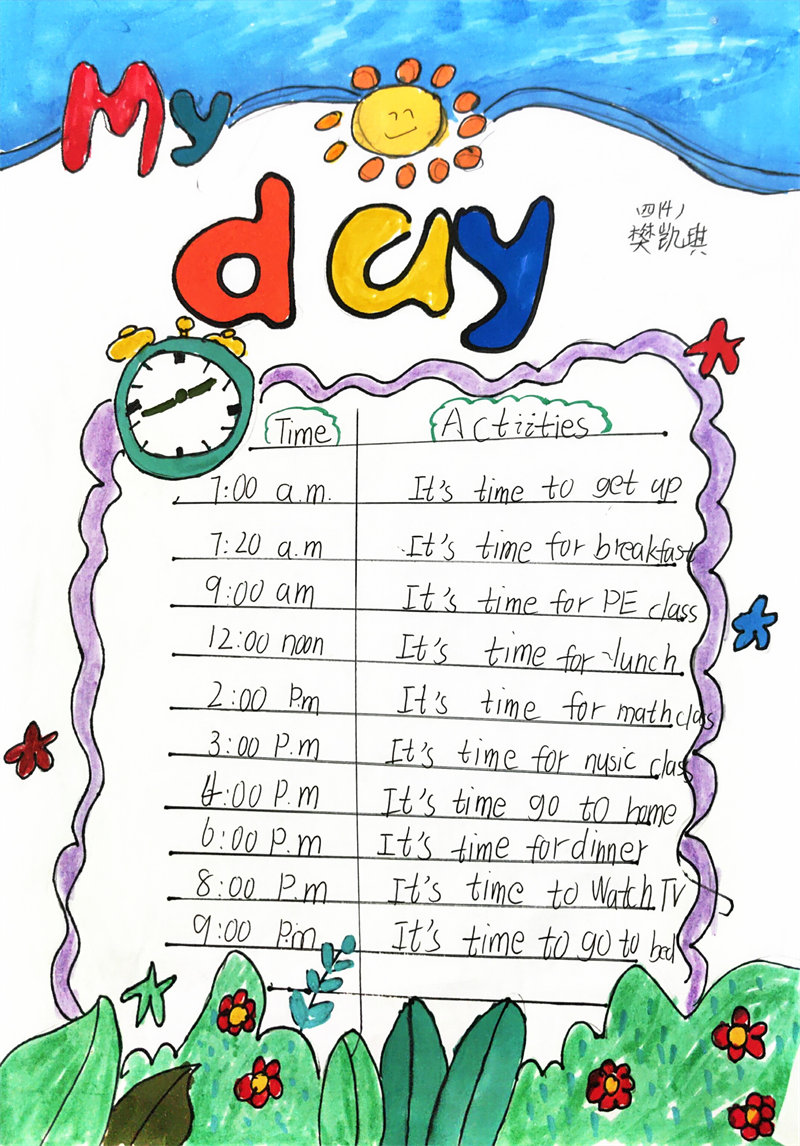 My
day
樊凯琪
Time Actiities
7:00 a.m. It's time to get up
7:20 a.m It's time for breakfast
9:00 am It's time for PE class
12:00 noon It's time for lunch
2:00 P.m It's time for math class
3:00 P.m It's time for nusic class
4:00 P.m It's time go to home
6:00 P.m It's time for dinner
8:00 P.m It's time to Watch TV
9:00 P.m It's time to go to bed